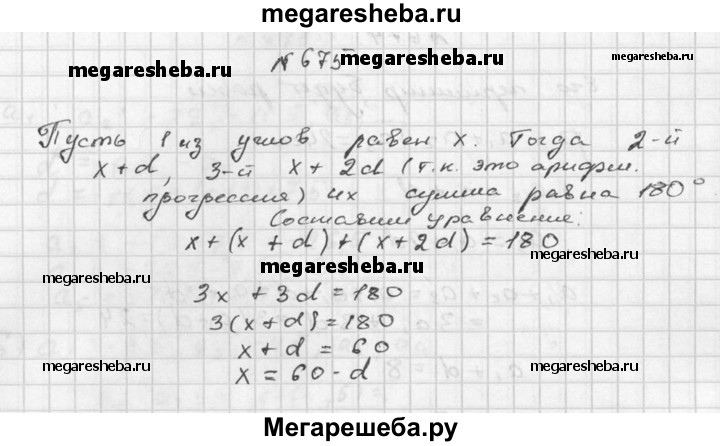 megaresheba.ru
№ 675
megaresheba.ru megaresheba.ru
Пусть 1 из углов равен x. Тогда 2-й
x + d, 3-й x + 2d (т.к. это арифм.
прогрессия) их сумма равна 180°
Составим уравнение:
x + (x + d) + (x + 2d) = 180
megaresheba.ru
megaresheba.ru megaresheba.ru
3x + 3d = 180
3(x + d) = 180
x + d = 60
x = 60 - d
megaresheba.ru megaresheba.ru
Мегарешеба.ру